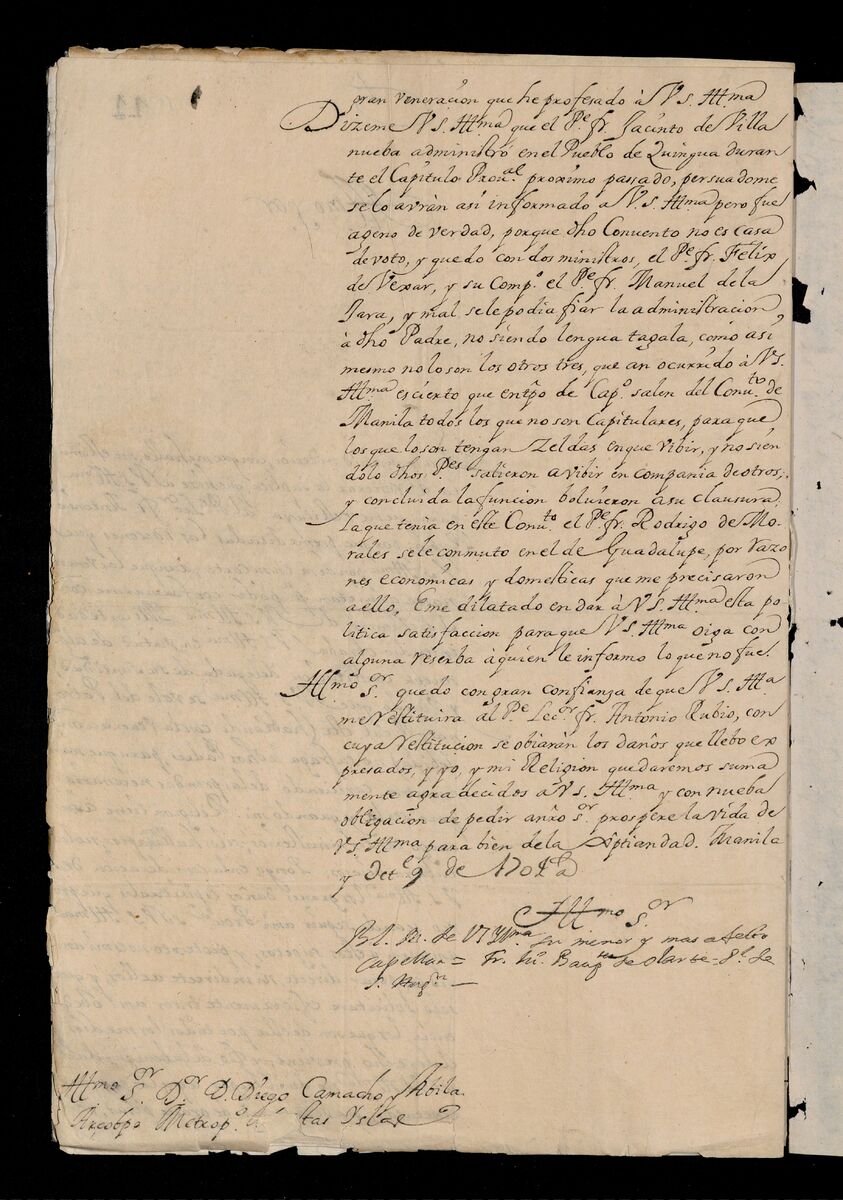 gran veneracion que he profesado à V.S. Illma
Dizeme V.S. Illma que el Pe. fr. Jacinto de Villa
nueba administró en el Pueblo de Quingua duran
te el Capitulo Proual. proximo passado, persuadome
se lo avràn asi informado a V.S. Illma pero fue
ageno de verdad, porque dho Convento no es casa
de voto, y quedo con dos ministros, el Pe. fr. Felix
de Vexar, y su Compo. el Pe. fr. Manuel de la
Para, y mal se le podia fiar la administracion
à dho Padre, no siendo lengua tagala, como asi
mesmo no lo son los otros tres, que an ocurrido à V.S.
Illma. es cierto que en tpo de Capo. salen del Conuto. de
Manila todos los que no son Capitulares, para que
los que lo son tengan Zeldas en que vibir, y no sien
dolo dhos Pes salieron a vibir en compania de otros,
y concluida la funcion boluieron à su clausura.
La que tenia en este Conuto. el Pe. fr. Rodrigo de Mo
rales se le conmuto en el de Guadalupe, por razo
nes economicas y domesticas que me precisaron
a ello, Eme dilatado en dar à V.S. Illma esta po
litica satisfaccion para que V.S. Illma oiga con
alguna reserba à quien le informo lo que no fue.
Illmo Sor. quedo con gran confianza de que V.S. Illma
me restituira al Pe. Lecor fr. Antonio Rubio, con
cuya restitucion se obiaràn los daños que llebo ex
presados, y yo, y mi Religion quedaremos suma
mente agradecidos a V.S. Illma y con nueba
obligacion de pedir a nro Sor. prospere la vida de
V.S. Illma para bien de la Xptiandad. Manila
y 9 de
Illmo Sor
B.l.m. de V.S. Yllma. su menor y mas afecto
Capellan = Fr. de Olarte
S. Augn.
Illmo Sor. Dor. D. Diego Camacho y Abila
Arçobpo Metropo. Yslas